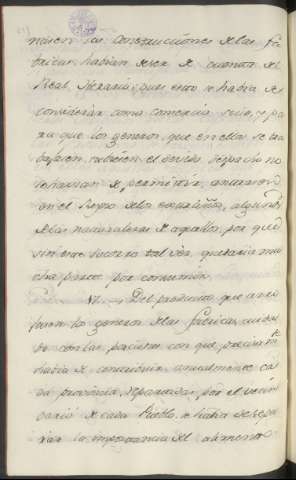 las construcciones de las fa-
bricas habian de ser de cuenta del
Real Herario, pues esto se habia de
considerar como comercio suyo, y pa-
ra que los generos, que en ellas se tra-
bajasen, tubiesen el devido despacho no
se habian de permitir,
en el Reyno de los estraños, algunos
de las naturalezas de aquellos, por que
sin este socorro tal vez, quedaria mu-
cha parte por consumir.
Del producto, que
los generos de las fabricas,
do con las pacientes con que precisam.te
habia de contribuir anualmente ca-
da provincia, separadas, por el vecin-
dario de cada Pueblo, se habia de sepa-
rar la importancia del alimento